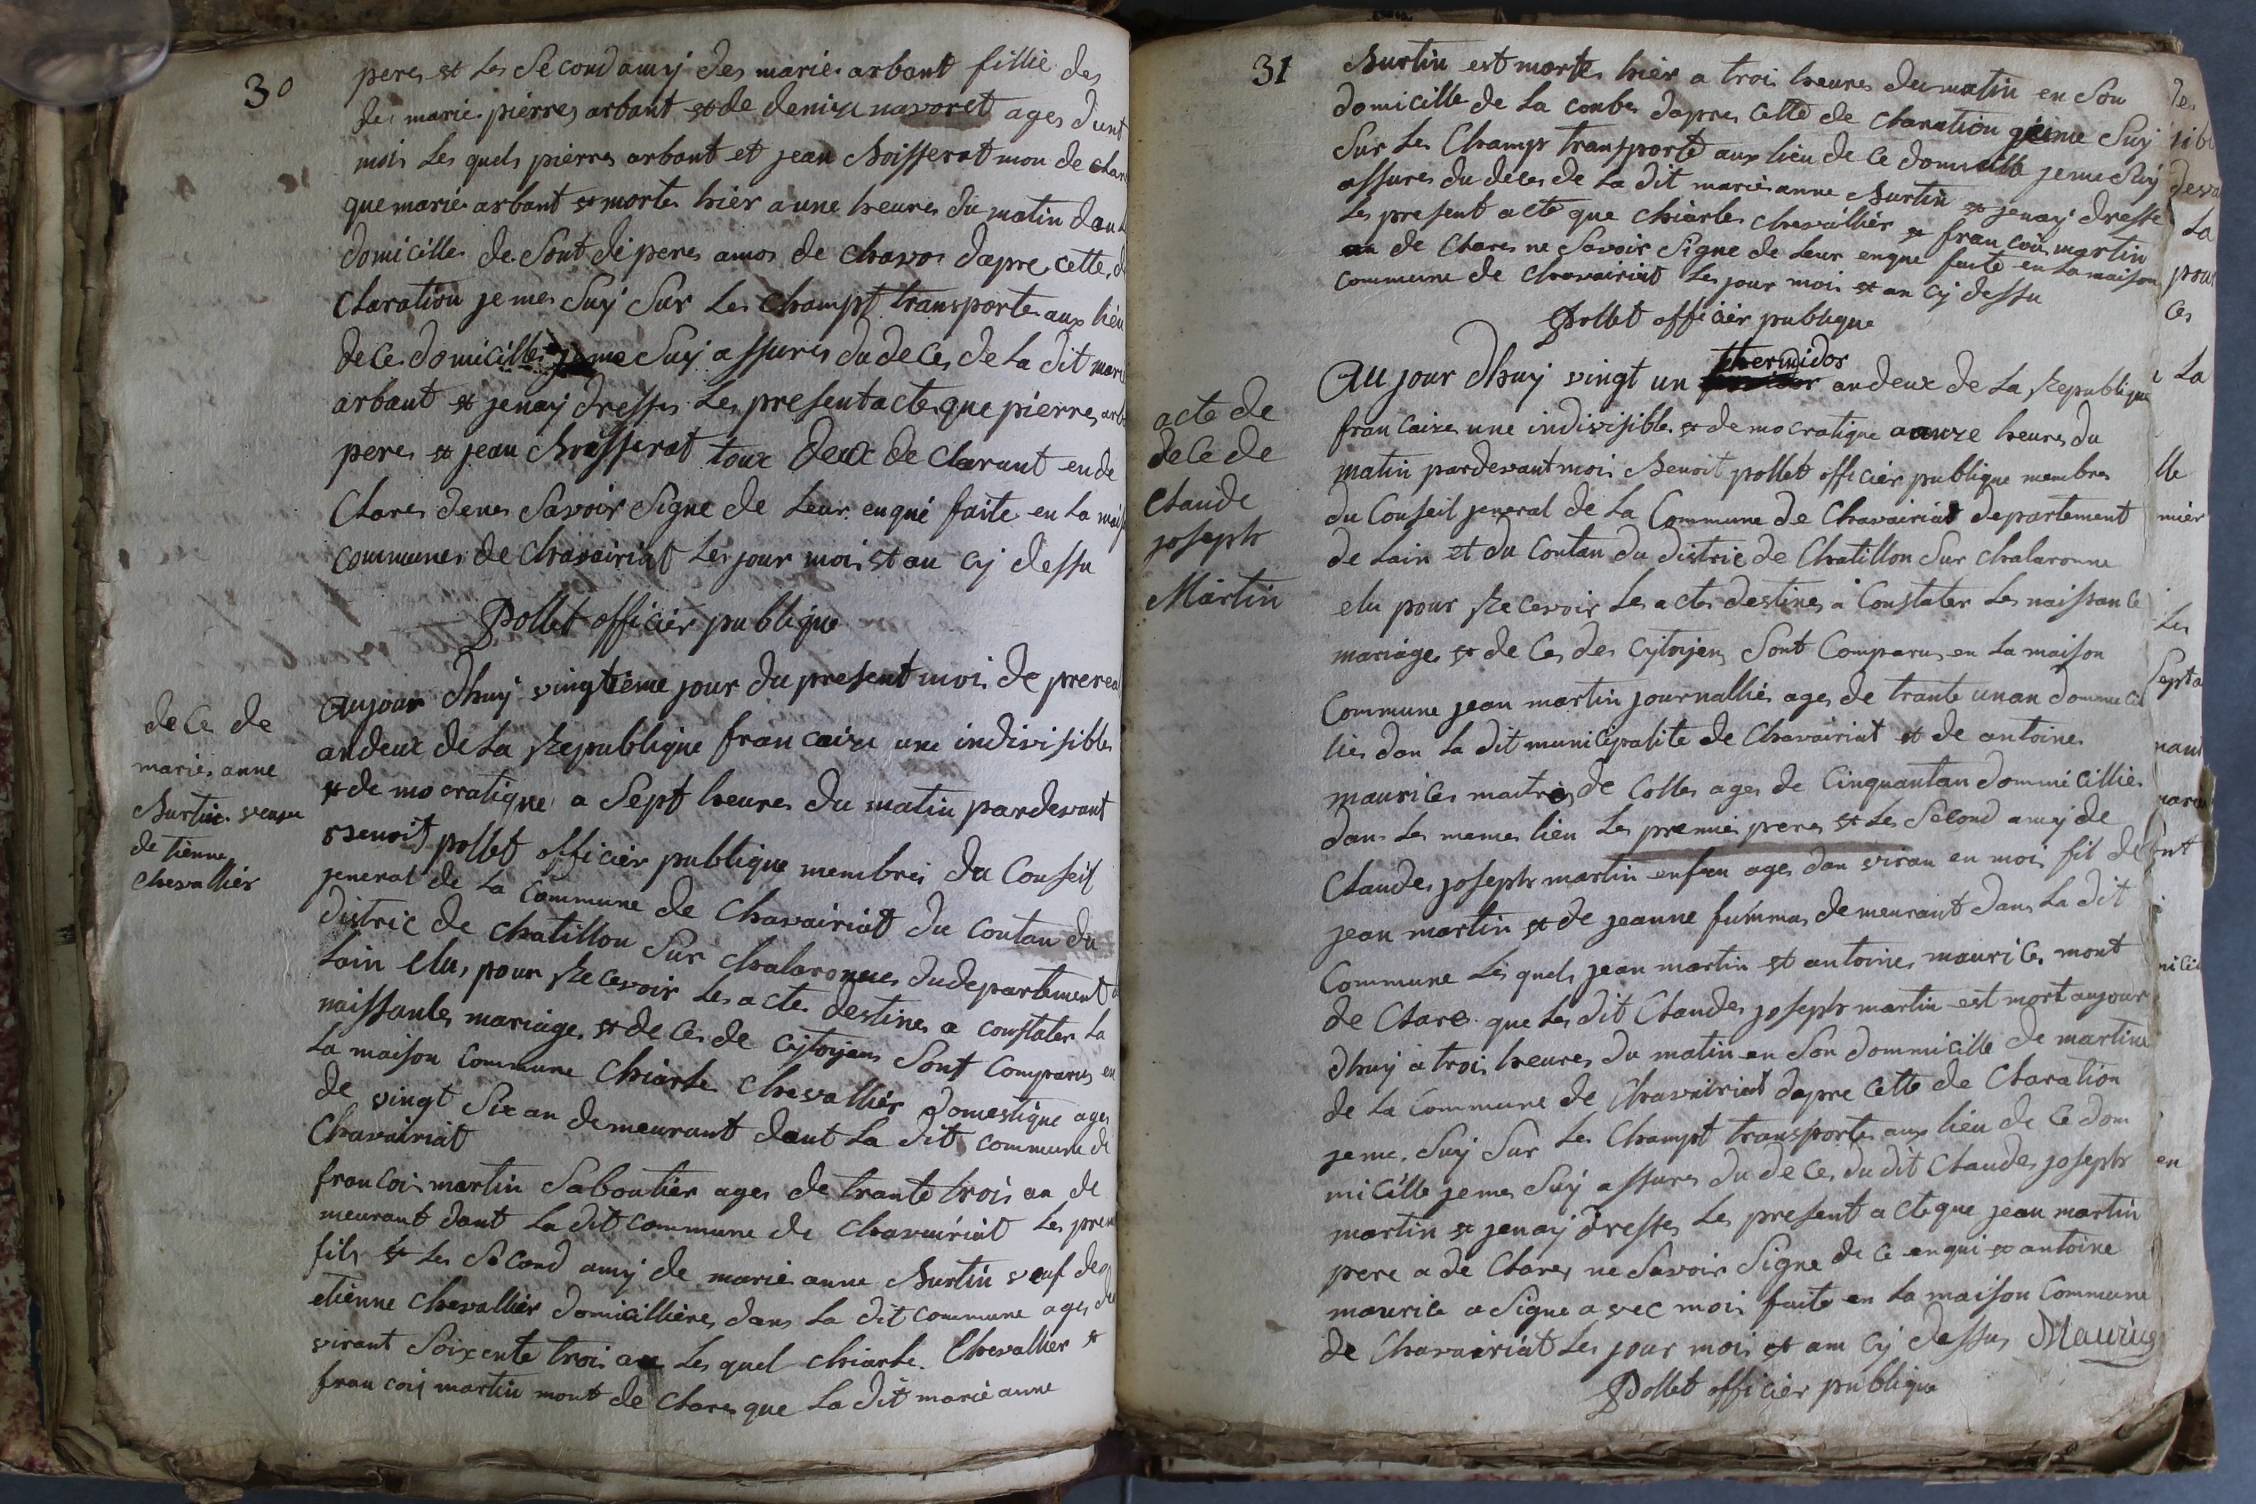 30
peres et les second amy des marie arbant fillie des
des marie pierres arbant et de denize navoret ages d'unt
mois les quels pierres arbant et jean Boisserat mon de clar
que marie arbant et mortes hier a une heures du matin dans
domicilles de sont di peres amos de chavos dapre cette d
claration je mes suy sur les champt transportes aux lieu
de ce domicilles je me suy assures du deces de la dit marie
arbant et jenay dresses les present acte que pierres arb
peres et jean Boisserat toux deux de clarant en de
clares denes savoir signe de leur enqué faite en la mais
communes de chavairiat les jour mois et an cy dessu
Pollet officier publique
dece de
marie anne
Burtin veuve
de tienne
chevallier
aujour dhuy vingtieme jour du present moi de prereal
an deux de la Republique francaize une indivisibles
et de mocratique a sept heures du matin pardevant
Benoit pollet officier publique membres du Conseil
jeneral de la Commune de Chavairiat du Contan du
distric de chatillon sur chalaronnes du departement d
lain elus pour Recevoir les acte destines a constater la
naissantes mariage et de ces de cytoyens sont comparus en
la maison commune chiarle chevallier domestique ages
de vingt six an demeurant dant la dit commune de
Chavairiat
francois martin saboutier ages de trante trois an de
meurant dant la dit commune de chavairiat les prem
fils et les second amy de marie anne Burtin veuf de
etienne chevallier domicillieres dans la dit commune ages de
virant soixente trois an les quel chiarle chevallier et
francois martin mont de clares que la dit marie anne
31
Burtin est mortes hier a trois heures du matin en son
domicille de la coubes dapres cette de claration je me suy
sur les Champt transporté aux lieu de ce domicille je me suy
assures du deces de la dit marie anne Burtin et jenay dresse
les present acte que chiarles chevallier et francois martin
an de clares ne savoir signe de leur enque faite en la maison
commune de chavairiat les jour mois et an cy dessu
Pollet officier publique
acte de
dece de
Claude
joseph
Martin
thermidor
Au jour dhuy vingt un an deux de la Republique
francaize une indivisibles et de mocratique a onze heures du
matin pardevant moi Benoit pollet officier publique membres
du Conseil jeneral de la Commune de Chavairiat departement
de lain et du Contan du distric de Chatillon sur chalaronne
elu pour Recevoir les actes destines a Constater les naissance
mariages et de ces des cytoyens sont Comparus en la maison
Commune jean martin journallié ages de trante un an dommicil
lies dan la dit municipalite de Chavairiat et de antoines
maurices maitres de Colles ages de Cinquantan dommicillies
dans les memes lieu les premie peres et les second amy de
Claudes joseph martin enfan ages dan viran en mois fil de
jean martin et de jeanne fummas demeurant dans la dit
Commune les quels jean martin et antoines maurices mont
de clares que les dit Claudes joseph martin est mort aujour
dhuy a trois heures du matin en son dommicille de martine
de la Commune de Chavairiat dapre cette de claration
je me suy sur les Champt transportes aux lieu de ce dom
micille je mes suy assures du de ces du dit Claudes joseph
martin et jenay dresses les present acte que jean martin
pere a de clares ne savoir signe de ce enqui et antoine
maurice a signe avec moi faite en la maison Commune
de Chavairiat les jour mois et am cy dessus Maurice
Pollet officier publique